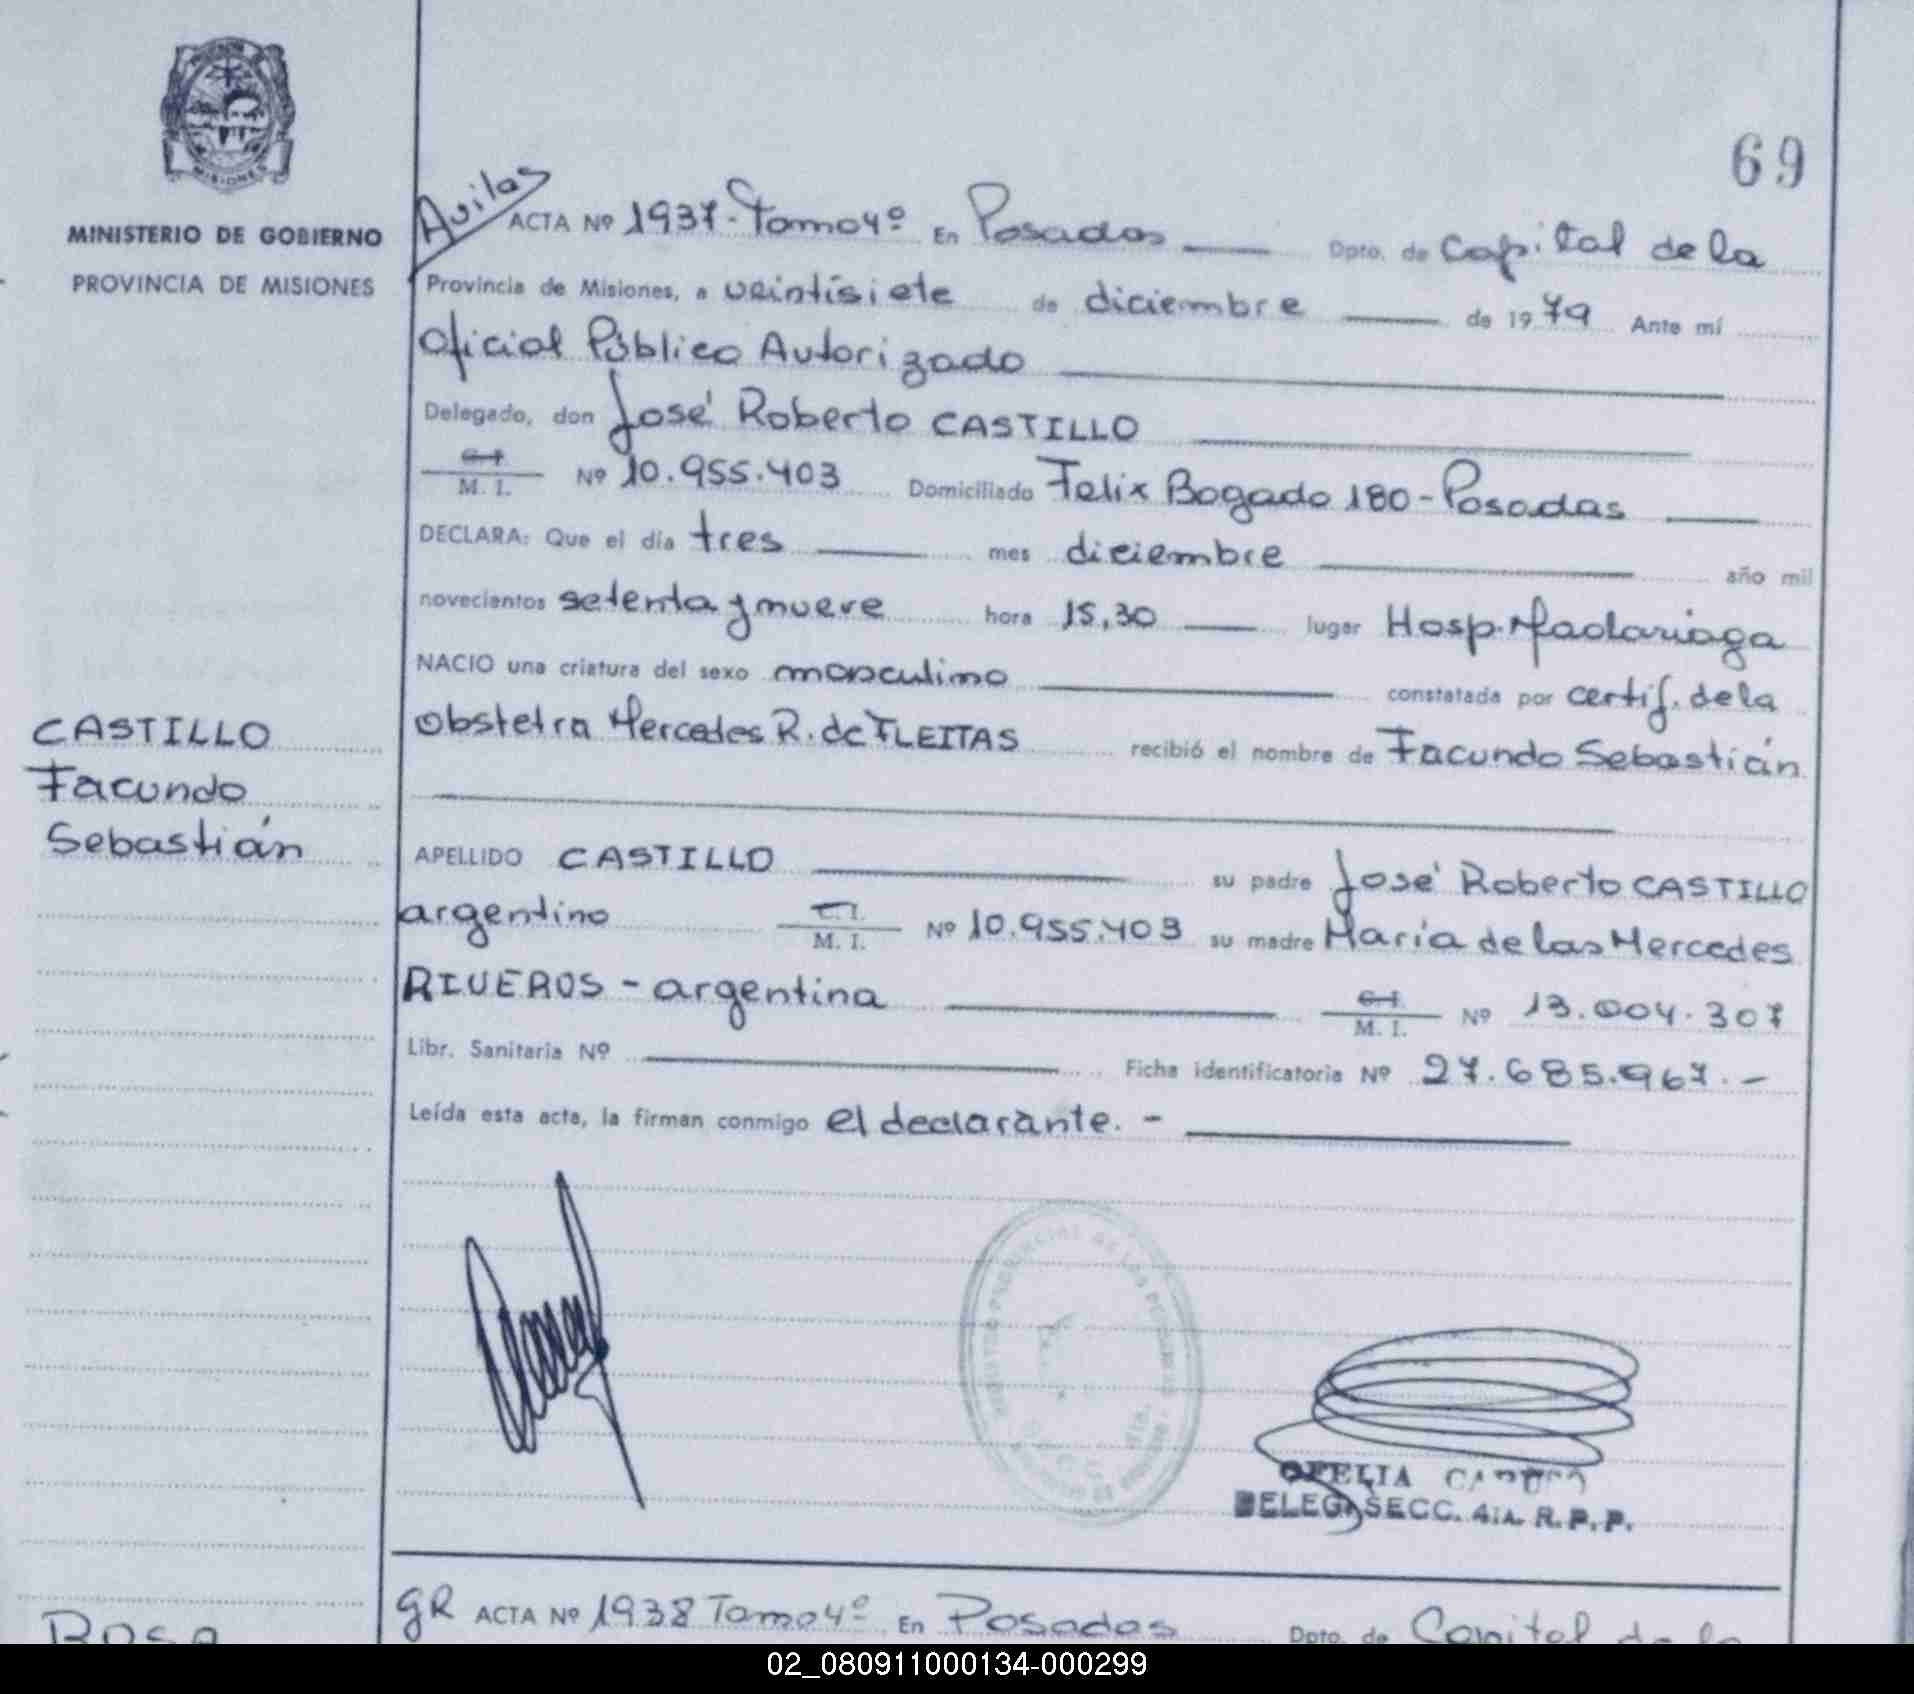 MISIONES
69
MINISTERIO DE GOBIERNO
PROVINCIA DE MISIONES
CASTILLO
Facundo
Sebastián
Avilas
ACTA Nº 1937-Tomo 4º En Posadas Dpto. de Capital de la
Provincia de Misiones, a veintisiete de diciembre de 1979 Ante mí
Oficial Público Autorizado
Delegado, don José Roberto CASTILLO
C.I.
M. I. Nº 10.955.403 Domiciliado Felix Bogado 180-Posadas
DECLARA: Que el día tres mes diciembre año mil
novecientos setenta y nueve hora 15,30 lugar Hosp. Madariaga
NACIO una criatura del sexo masculino constatada por certif. de la
obstetra Mercedes R. de FLEITAS recibió el nombre de Facundo Sebastián
APELLIDO CASTILLO su padre José Roberto CASTILLO
argentino C.I. M. I. Nº 10.955.403 su madre María de las Mercedes
RIVEROS - argentina C.I. M. I. Nº 13.004.307
Libr. Sanitaria Nº Ficha identificatoria Nº 27.685.967.-
Leída esta acta, la firman conmigo el declarante.-
PROVINCIAL DE LAS PERSONAS
OFELIA
DELEG. SECC. 4ia. R.P.P.
GR ACTA Nº 1938 Tomo 4º En Posadas Dpto. de Capital de la
ROSA
02_080911000134-000299